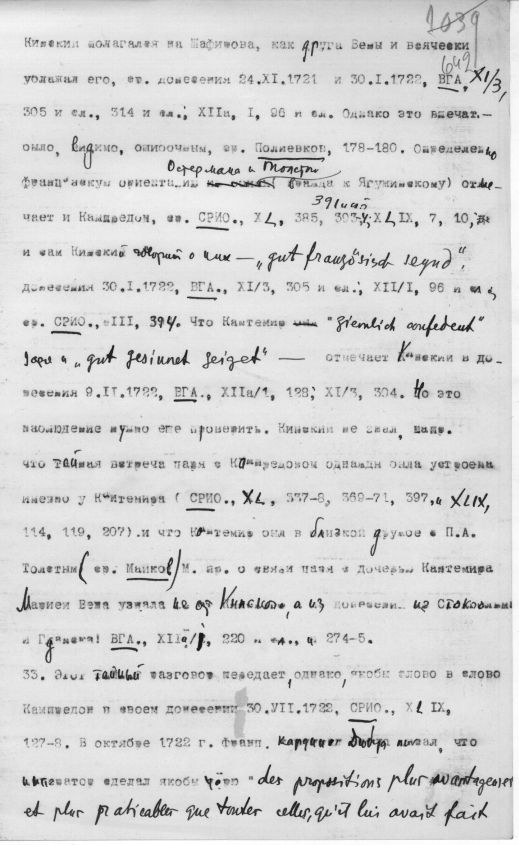 1039
642
Кинский полагался на Шафирова, как друга Вены и всячески
ублажал его, ср. донесения 24.XI.1721 и 30.I.1722, ВГА, XI/3,
305 и сл., 314 и сл.; XIIа, I, 96 и сл. Однако это впечат.-
было, видимо, ошибочным, ср. Полиевков, 178-180. Определенно
Остермана и Толстого
французскую ориентацию (правда к Ягужинскому) отме-
391 и сл.
чает и Кампредон, ср. СРИО., XL, 385, XLIX, 7, 10, да
и сам Кинский говорит о них — „gut französisch seynd".
донесения 30.I.1722, ВГА., XI/3, 305 и сл.; XII/I, 96 и сл.
ср. СРИО., III, 394. Что Кантемир "ziemlich confedent"
царя и „gut gesinnet zeiget" — отмечает Кинский в до-
несения 9.II.1722, ВГА., XIIа/1, 128; XI/3, 304. Но это
наблюдение нужно еще проверить. Кинский не знал, напр.
что тайная встреча царя с Кампредоном однажды была устроена
именно у Кантемира (СРИО., XL, 337-8, 369-71, 397, и XLIX,
114, 119, 207). и что Кантемир был в близкой дружбе с П.А.
Толстым (ср. Майков) М. пр. о связи царя с дочерью Кантемира
Марией Вена узнала не от Кинского, а из донесений из Стокгольма
и Гданска! ВГА., XIIа/I, 220 и сл., и 274-5.
33. Этот тайный разговор передает, однако, якобы слово в слово
Кампредон в своем донесении 30.VII.1722, СРИО., XLIX,
127-8. В октябре 1722 г. франц. кардинал Дюбуа писал, что
сделал якобы царю "des propositions plus avantageuses
et plus praticables que toutes celles, qu'il lui avait fait